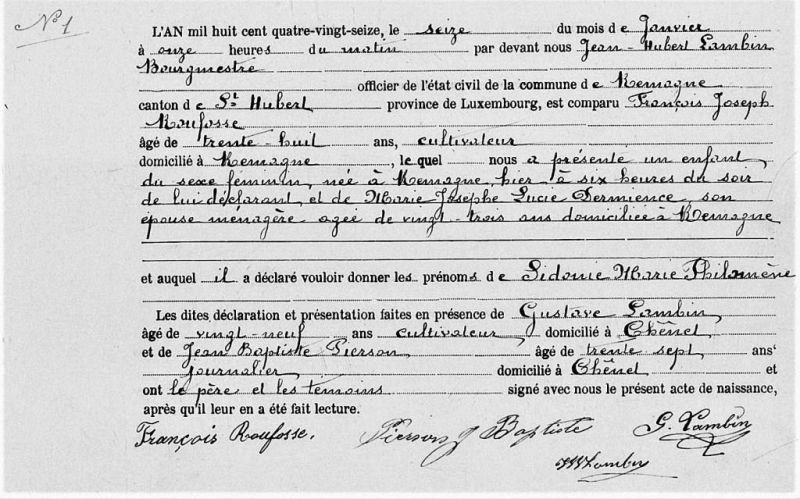 N° 1
L'AN mil huit cent quatre-vingt-seize, le seize du mois de Janvier
à onze heures du matin par devant nous Jean-Hubert Lambin
Bourgmestre
officier de l'état civil de la commune de Remagne
canton de St Hubert province de Luxembourg, est comparu François Joseph
Roufosse
âgé de trente-huit ans, cultivateur
domicilié à Remagne, le quel nous a présenté un enfant
du sexe féminin, née à Remagne, hier à six heures du soir
de lui déclarant, et de Marie Josèphe Lucie Dermience, son
épouse ménagère agée de vingt-trois ans domiciliée à Remagne
et auquel il a déclaré vouloir donner les prénoms de Sidonie Marie Philomène
Les dites déclaration et présentation faites en présence de Gustave Lambin,
âgé de vingt-neuf ans cultivateur, domicilié à Chênet
et de Jean Baptiste Pierson âgé de trente sept ans
journalier domicilié à Chênet et
ont le père et les temoins signé avec nous le présent acte de naissance,
après qu'il leur en a été fait lecture.
François Roufosse. Pierson J Baptiste G. Lambin
JH Lambin